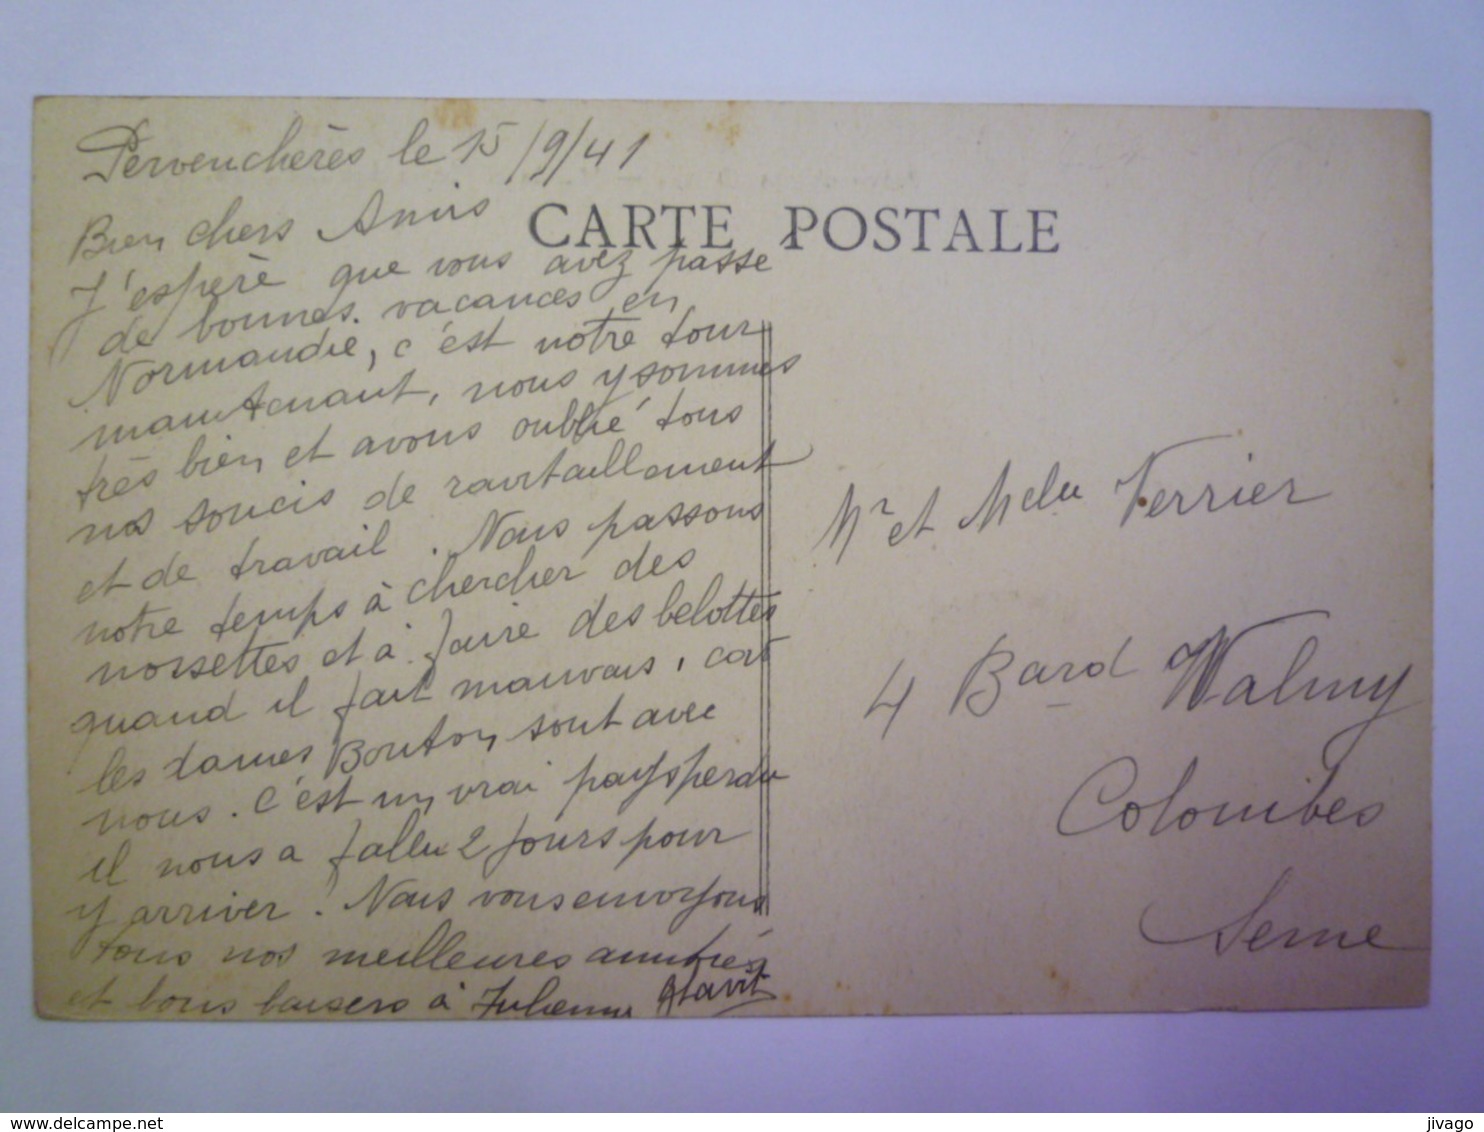 Pervenchères le 15/9/41
Bien chers Amis
CARTE POSTALE
J'espère que vous avez passe
de bonnes vacances en
Normandie, c'est notre tour
maintenant, nous y sommes
très bien et avons oublié tous
nos soucis de ravitaillement
et de travail. Nous passons
notre temps à chercher des
noisettes et à faire des belottes
quand il fait mauvais, car
les dames Bouton sont avec
nous. C'est un vrai pays perdu
il nous a fallu 2 jours pour
y arriver! Nous vous envoyons
tous nos meilleures amitiés
et bons baisers à Julienne
Mr et Verrier
4 Bard Walmy
Colombes
Seine
delcampe.net
jivago